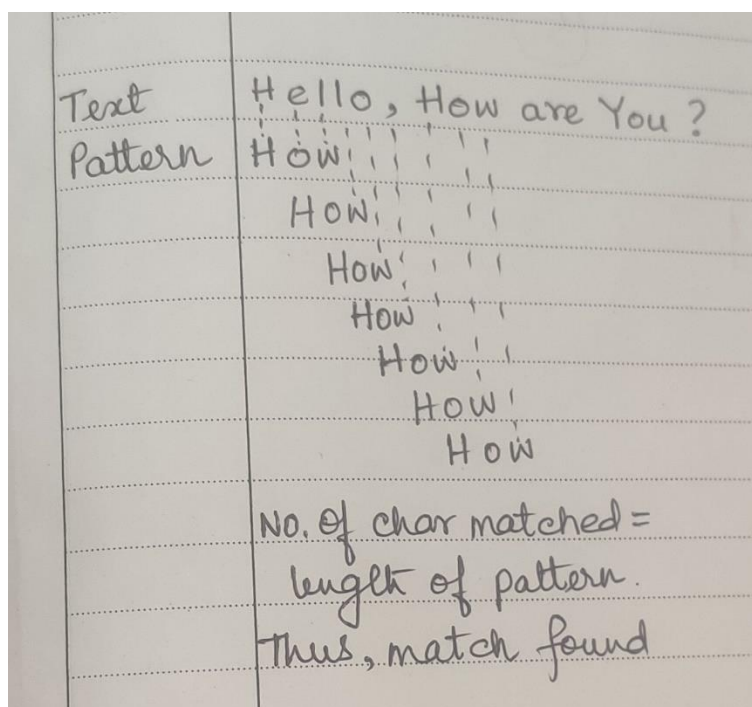 Text Hello, How are You ?
Pattern How
How
How
How
How
How
How
No. Of char matched =
length of pattern.
Thus, match found